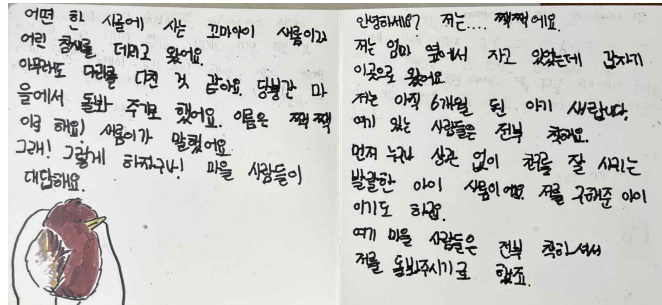 어떤 한 시골에 사는 꼬마아이 새롬이가
어린 참새를 데리고 왔어요.
아무래도 다리를 다친 것 같아요. 당분간 마
을에서 돌봐 주기로 했어요. 이름은 짹짹
이로 해요! 새롬이가 말했어요.
그래! 그렇게 하자구나! 마을 사람들이
대답해요.
안녕하세요? 저는.... 짹짹에요.
저는 엄마 옆에서 자고 있었는데 갑자기
이곳으로 왔어요.
저는 아직 6개월 된 아기 새랍니다.
여기 있는 사람들은 전부 착해요.
먼저 누구나 상관 없이 친구를 잘 사귀는
발랄한 아이 새롬이에요. 저를 구해준 아이
이기도 하고요.
여기 마을 사람들은 전부 착하셔서
저를 돌봐주시기로 했죠.